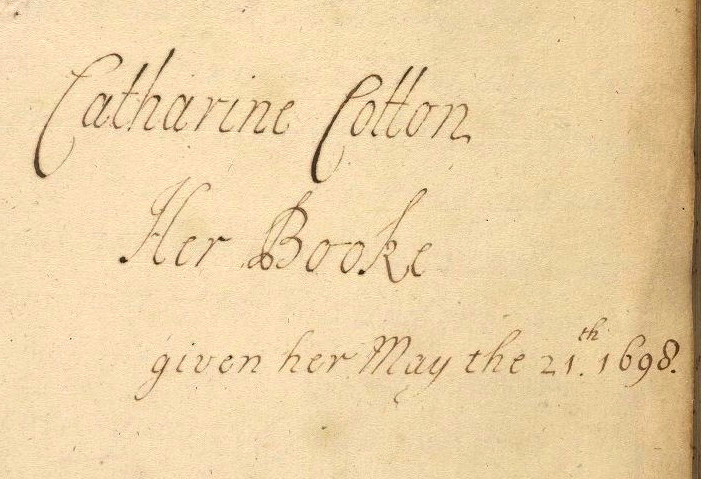 Catharine Cotton
Her Booke
given her May the 21.th 1698.